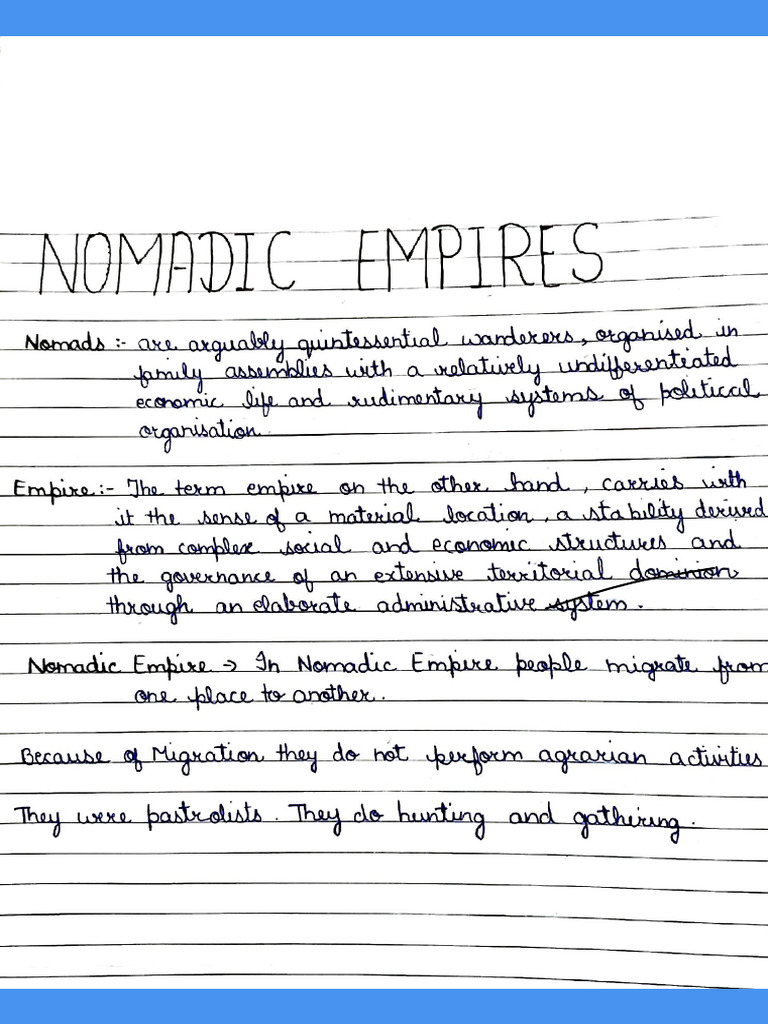 NOMADIC EMPIRES
Nomads :- are arguably quintessential wanderers, organised in
family assemblies with a relatively undifferentiated
economic life and rudimentary systems of political
organisation.
Empire :- The term empire on the other hand, carries with
it the sense of a material location, a stability derived
from complex social and economic structures and
the governance of an extensive territorial dominion
through an elaborate administrative system.
Nomadic Empire → In Nomadic Empire people migrate from
one place to another.
Because of Migration they do not perform agrarian activities
They were pastrolists. They do hunting and gathering.